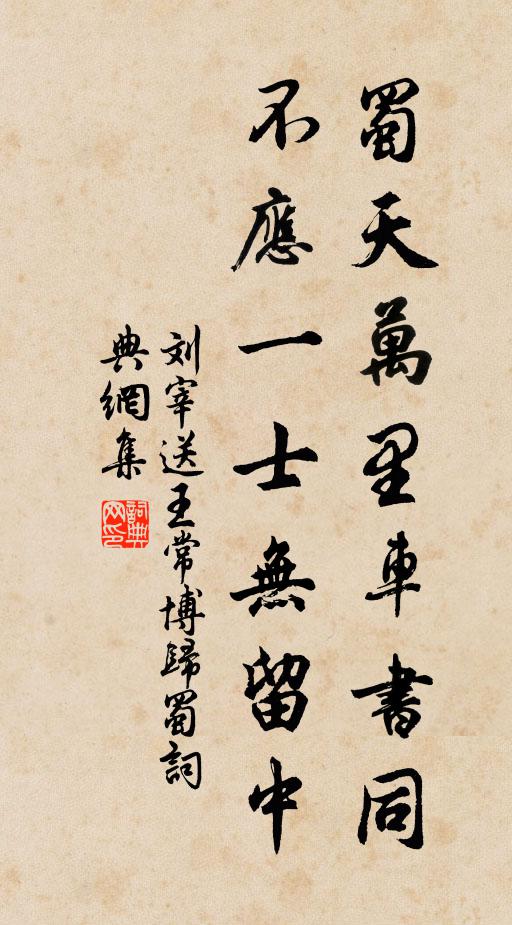 蜀天萬里車書同
不應一士無留中
刘宰送王常博歸蜀詞
典網集
詞典
网印